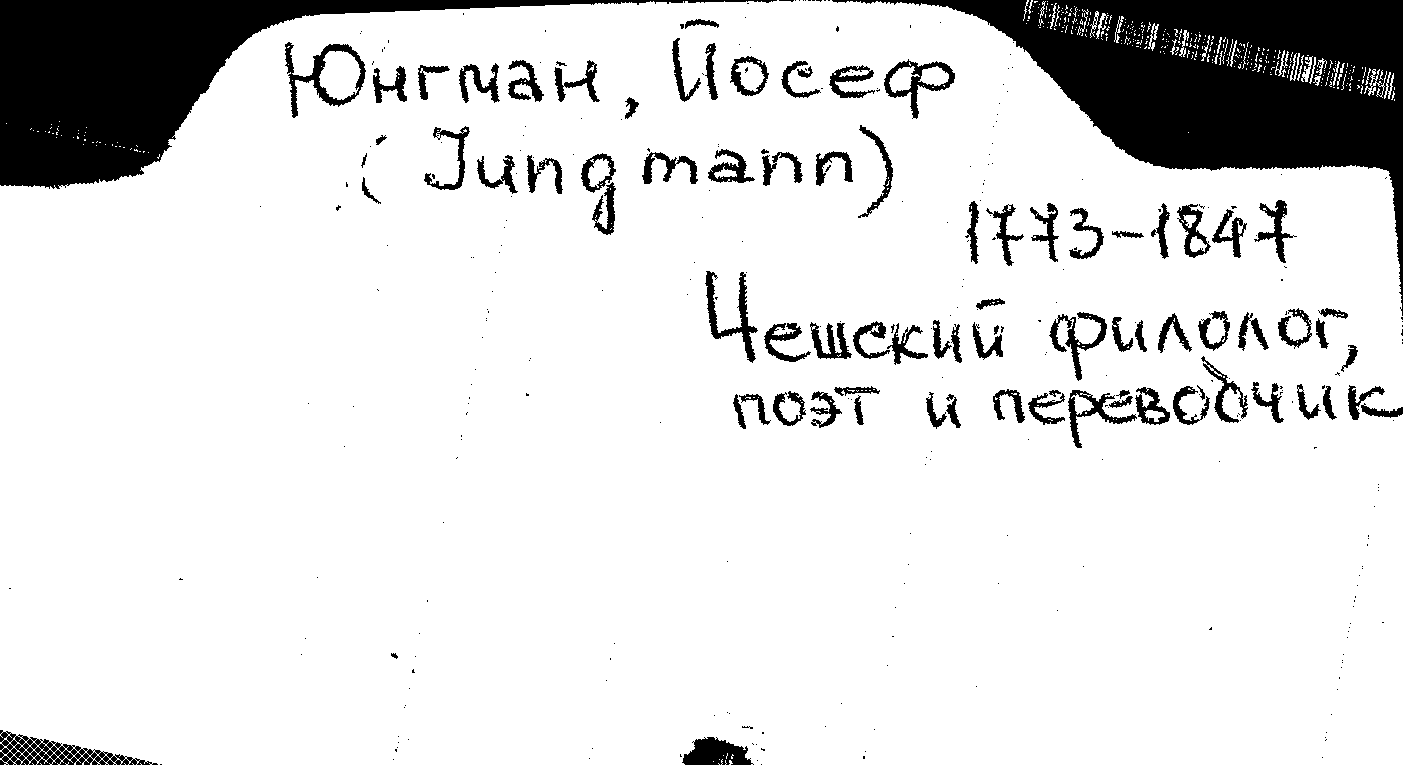 Юнгман, Йосеф
(Jungmann)
1773-1847
Чешский филолог,
поэт и переводчик